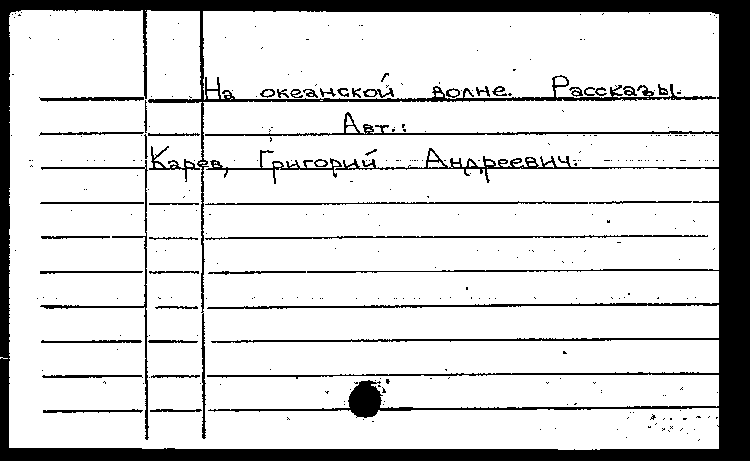 На океанской волне. Рассказы.
Авт.:
Карев, Григорий Андреевич.